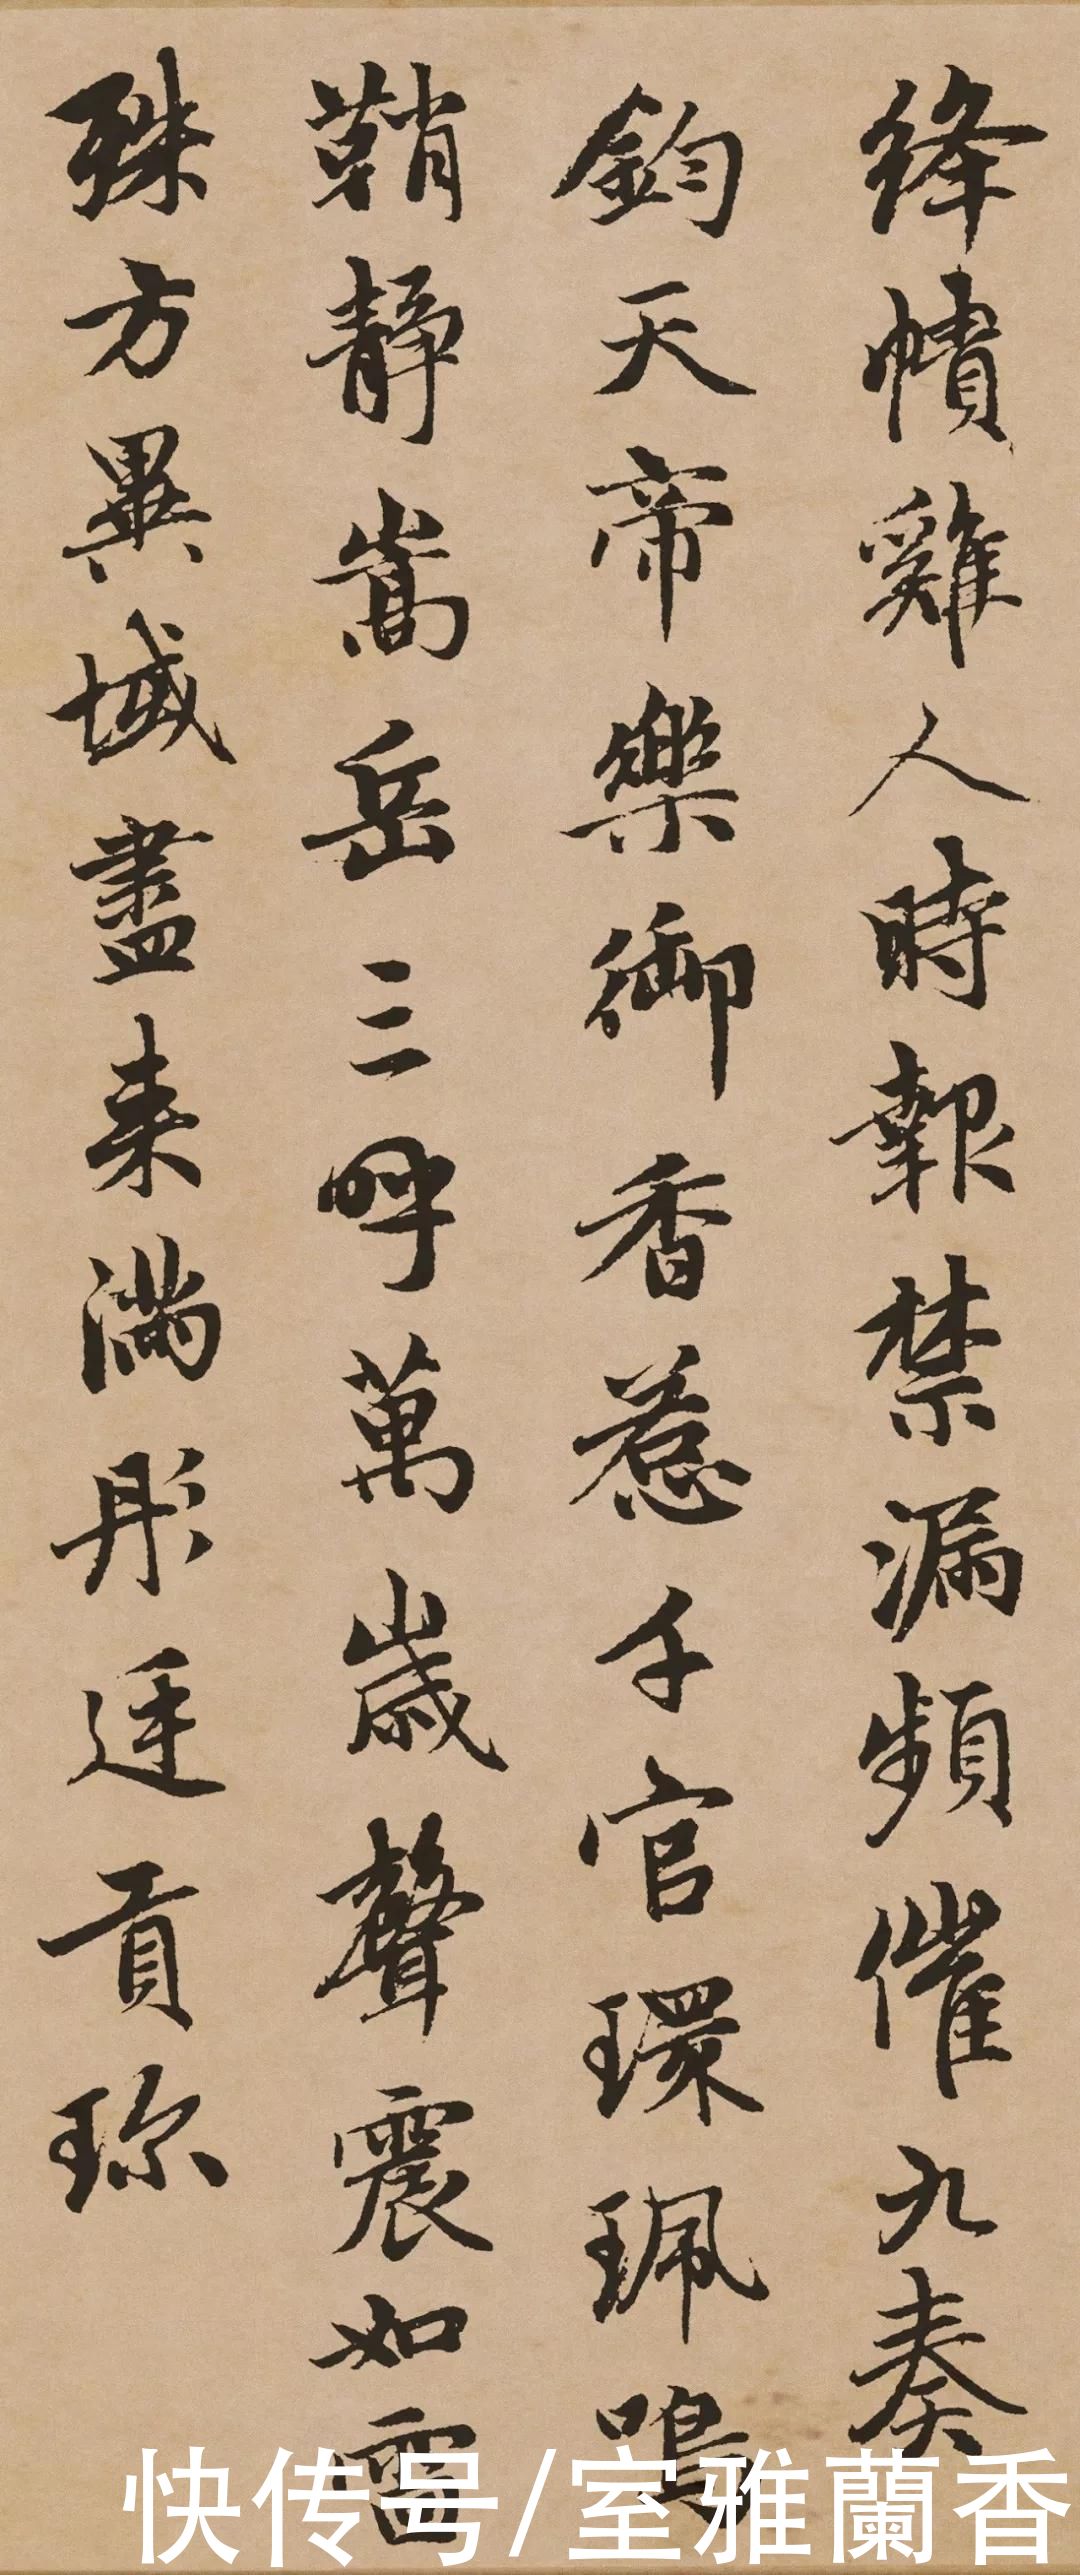 绛幘雞人時報禁漏頻催九奏
鈞天帝樂御香惹千官環珮鳴
鞘靜嵩岳三呼萬歲聲震如雷
殊方異域盡来滿彤廷貢珎
快传号/室雅蘭香